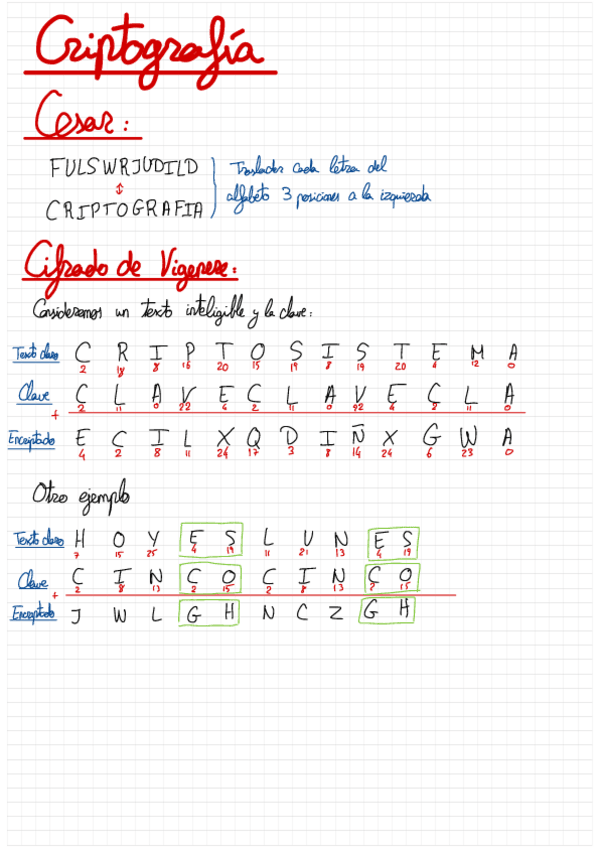 Criptografía
Cesar:
FULSWRJUDILD
Trasladar cada letra del
↕
alfabeto 3 posiciones a la izquierda
CRIPTOGRAFIA
Cifrado de Vigenere:
Consideramos un texto inteligible y la clave:
Texto claro C R I P T O S I S T E M A
2 18 8 16 20 15 19 8 19 20 4 12 0
Clave C L A V E C L A V E C L A
2 11 0 22 4 2 11 0 22 4 2 11 0
+
Encriptado E C I L X Q D I Ñ X G W A
4 2 8 11 24 17 3 8 14 24 6 23 0
Otro ejemplo
Texto claro H O Y E S L U N E S
7 15 25 4 19 11 21 13 4 19
Clave C I N C O C I N C O
2 8 13 2 15 2 8 13 2 15
+
Encriptado J W L G H N C Z G H